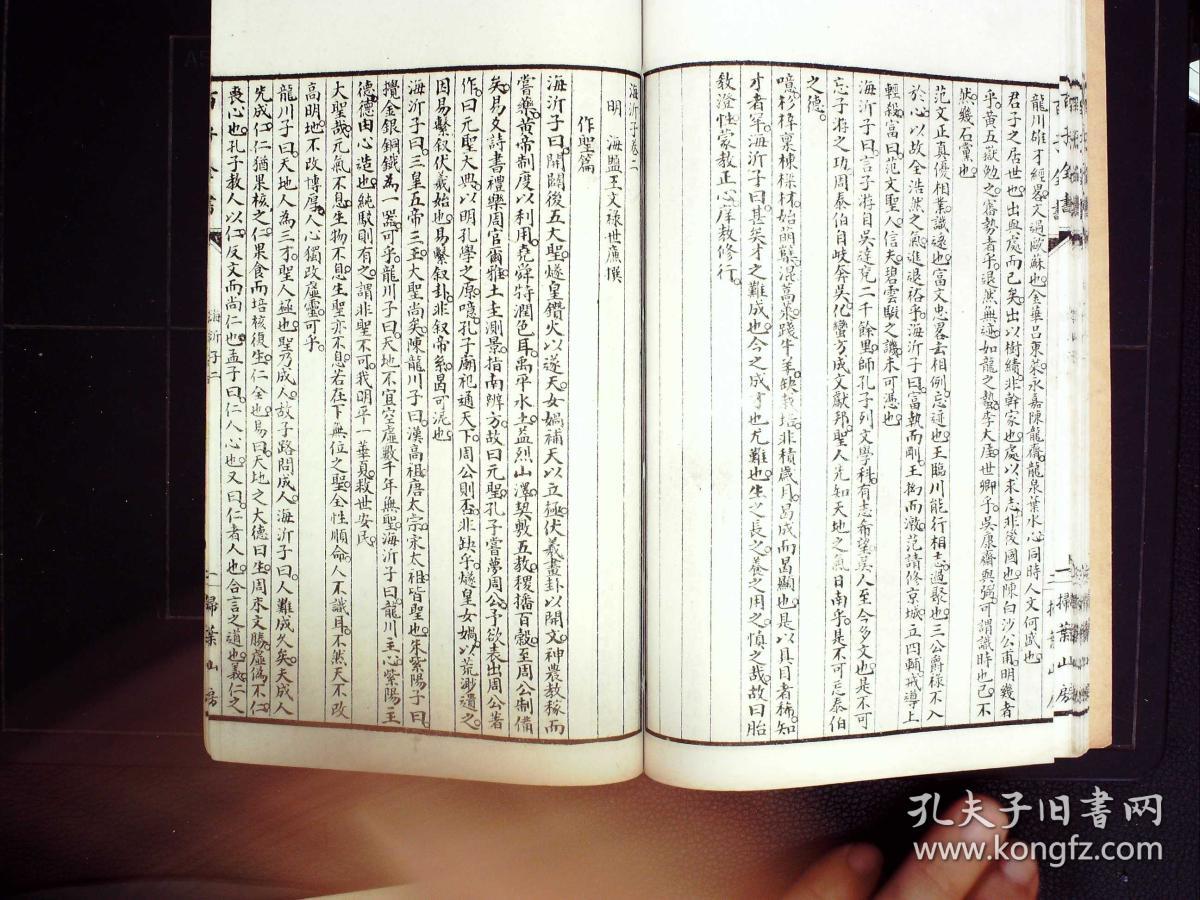 龍川雄才經畧文過歐蘇也金華呂東萊永嘉陳龍齋龍泉葉水心同時人文何盛也
君子之居世也出與處而已矣出以樹績非幹家也處以求志非後國也陳白沙公甫明幾者
乎黃五嶽勉之審勢者乎退然無迹如龍之蟄李大厓世卿乎吳康齋與弼可謂識時也已不
然幾石黨也
范文正真優相業識遠也富文忠畧去相例忘迹也王臨川能行相志過聚也三公爵祿不入
於心以政全浩然之氣進退裕乎海沂子曰富執而剛王拗而激范請修京城立四輔戒導上
輕殺富曰范文聖人信夫碧雲騢之譏未可憑也
海沂子曰言子游自吳達兗二千餘里師孔子列文學科有志希望吳人至今多文也是不可
忘子游之功周泰伯自岐奔吳化蠻方成文獻邦聖人先知天地之氣日南乎是不可忘泰伯
之德
噫杉梓稟棟樑材始萌蘖混蒿萊踐牛羊缺栽培非積歲月曷成而曷顯也是以具目者稀知
才者罕海沂子曰甚矣才之難成也今之成才也尤難也生之長之養之用之慎之哉故曰胎
教澄性蒙教正心庠教修行
海沂子卷二
明 海鹽王文祿世廉撰
作聖篇
海沂子曰開闢後五大聖燧皇鑽火以遂天女媧補天以立極伏羲畫卦以開文神農教稼而
嘗藥黃帝制度以利用堯舜特潤色耳禹平水土益烈山澤契敷五教稷播百穀至周公制備
矣易爻詩書禮樂周官爾雅土圭測景指南辨方故曰元聖孔子嘗夢周公予欲表出周公著
作曰元聖大典以明孔學之原噫孔子廟祀通天下周公則否非缺乎燧皇女媧以荒渺遺之
因易繫叙伏羲始也易繫叙卦非叙帝系曷可泥也
海沂子曰三皇五帝三王大聖尚矣陳龍川子曰漢高祖唐太宗宋太祖皆聖也朱紫陽子曰
攪金銀銅鐵為一器可乎龍川子曰天地不宜空虛數千年無聖海沂子曰龍川主心紫陽主
德德由心造也純駁則有之謂非聖不可我明平一華夏救世安民
大聖哉元氣不息生物不息生聖亦不息若在下無位之聖全性順命人不識耳不然天不改
高明地不改博厚人心獨改虛靈可乎
龍川子曰天地人為三才聖人極也聖乃成人故子路問成人海沂子曰人難成久矣夫成人
先成仁仁猶果核之仁果食而培核復生仁全也易曰天地之大德曰生周末文勝虛偽不仁
喪心也孔子教人以仁反文而尚仁也孟子曰仁人心也又曰仁者人也合言之道也義仁之
百子全書
海沂子二
二
掃葉山房
百子全書
掃葉山房
孔夫子旧书网
www.kongfz.com